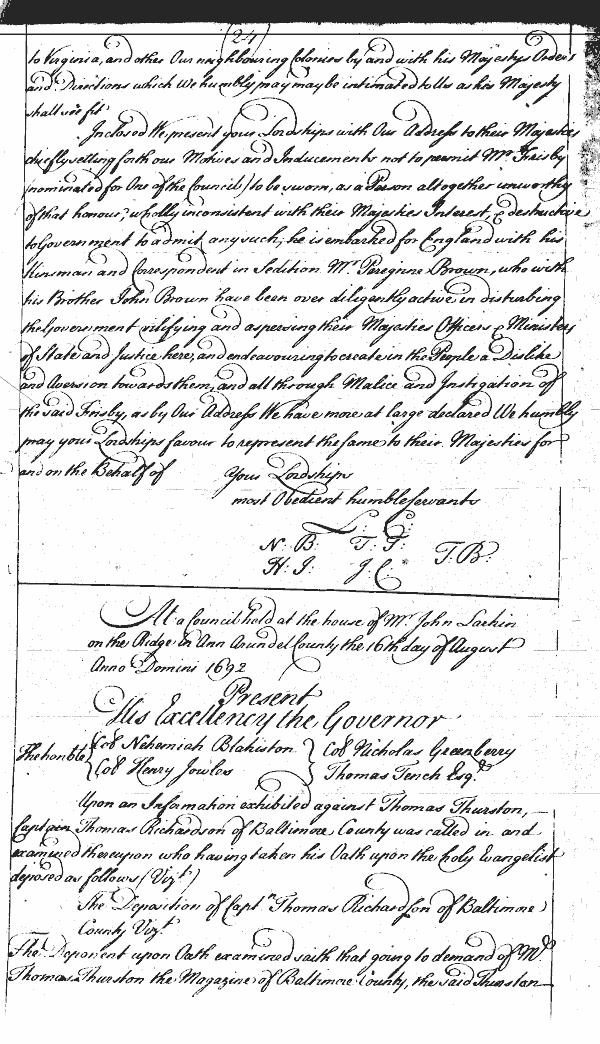 (24)
to Virginia, and other Our neighbouring Colonies by and with his Majestys Orders
and Directions which We humbly may may be intimated to Us as his Majesty
shall see fit
Inclosed We present your Lordships with Our Address to their Majesties
chiefly setting forth our Motives and Inducements not to permit Mr Frisby
(nominated for One of the Council) to be sworn, as a Person altogether unworthy
of that honour, wholly inconsistent with their Majesties Interest, & destructive
to Government to admit any such, he is embarked for England with his
Kinsman and Correspondent in Sedition Mr Peregrine Brown, who with
his Brother John Brown have been over diligently active in disturbing
the Government vilifying and aspersing their Majesties Officers & Ministers
of State and Justice here, and endeavouring to create in the People a Dislike
and Aversion towards them, and all through Malice and Instigation of
the said Frisby, as by Our Address We have more at large declared We humbly
may your Lordships favour to represent the same to their Majesties for
and on the Behalf of Your Lordships
most Obedient humble servants
L: C:
N: B: T: T: T: B:
H: J: J: C:
At a Council held at the house of Mr John Larkin
on the Ridge in Ann Arundel County the 16th day of August
Anno Domini 1692
Present
His Excellency the Governor
The honble { Coll Nehemiah Blakiston } Coll Nicholas Greenberry
Coll Henry Jowles Thomas Tench Esqr
Upon an Information exhibited against Thomas Thurston,
Captain Thomas Richardson of Baltimore County was called in and
examined thereupon who having taken his Oath upon the holy Evangelist
deposed as follows (Vizt)
The Deposition of Captn Thomas Richardson of Baltimore
County Vizt
The Deponent upon Oath examined saith that going to demand of Mr
Thomas Thurston the Magazine of Baltimore County, the said Thurston